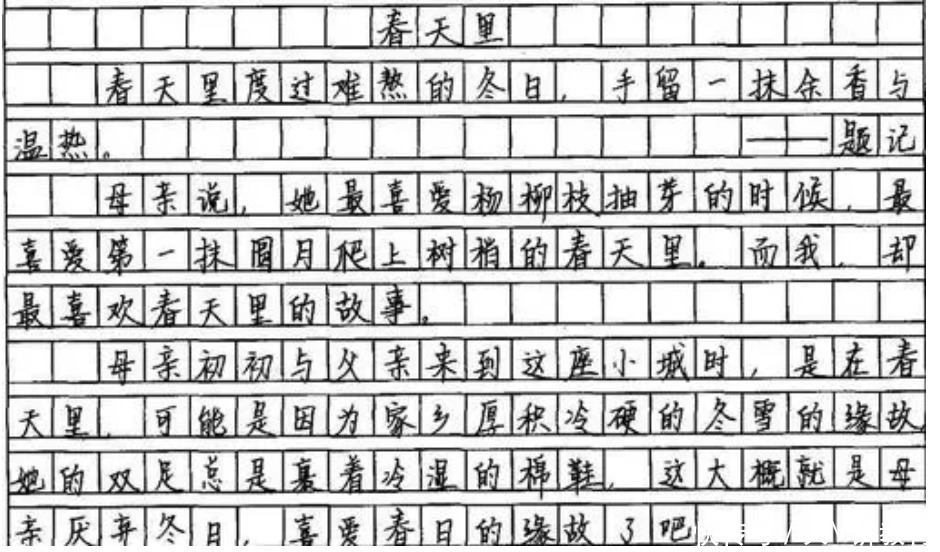 春天里
春天里度过难熬的冬日,手留一抹余香与
温热。——题记
母亲说,她最喜爱杨柳枝抽芽的时候,最
喜爱第一抹圆月爬上树梢的春天里。而我,却
最喜欢春天里的故事。
母亲初初与父亲来到这座小城时,是在春
天里,可能是因为家乡厚积冷硬的冬雪的缘故,
她的双足总是裹着冷湿的棉鞋,这大概就是母
亲厌弃冬日,喜爱春日的缘故了吧